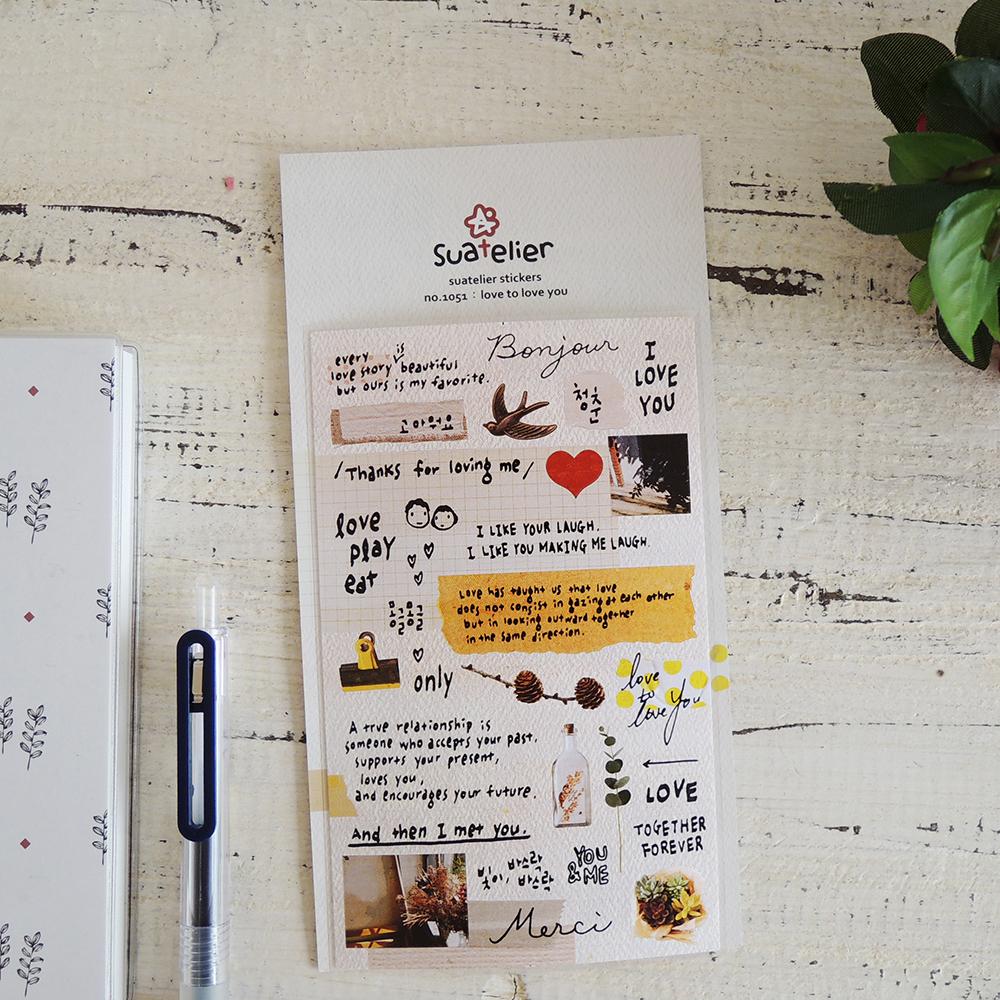 suatelier
suatelier stickers
no.1051 : love to love you
Bonjour
every is
love story beautiful
but ours is my favorite.
I
LOVE
YOU
고마워요
청춘
/Thanks for loving me/
love
play
eat
I LIKE YOUR LAUGH.
I LIKE YOU MAKING ME LAUGH.
Love has taught us that love
does not consist in gazing at each other
but in looking outward together
in the same direction.
몽글몽글
only
love
to
love you
A true relationship is
someone who accepts your past,
supports your present,
loves you,
and encourages your future.
And then I met you.
LOVE
TOGETHER
FOREVER
바스락
빛이, 바스락
YOU
& ME
Merci